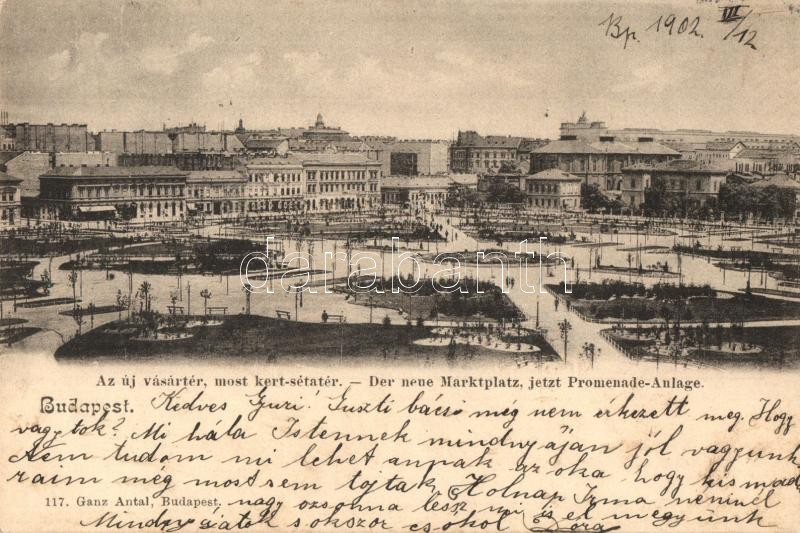 Bp. 1902. III/12
darabanth
Az új vásártér, most kert-sétatér. — Der neue Marktplatz, jetzt Promenade-Anlage.
Budapest. Kedves Guzi! Guszti bácsi még nem érkezett meg. Hogy
vagytok? Mi hála Istennek mindnyájan jól vagyunk
Nem tudom mi lehet annak az oka, hogy kismad
raim még most sem tojtak. Holnap Irma néninél
117. Ganz Antal, Budapest. nagy ozsonna lesz, mi is el megyünk
Mindnyájatok sokszor csókol Dóra